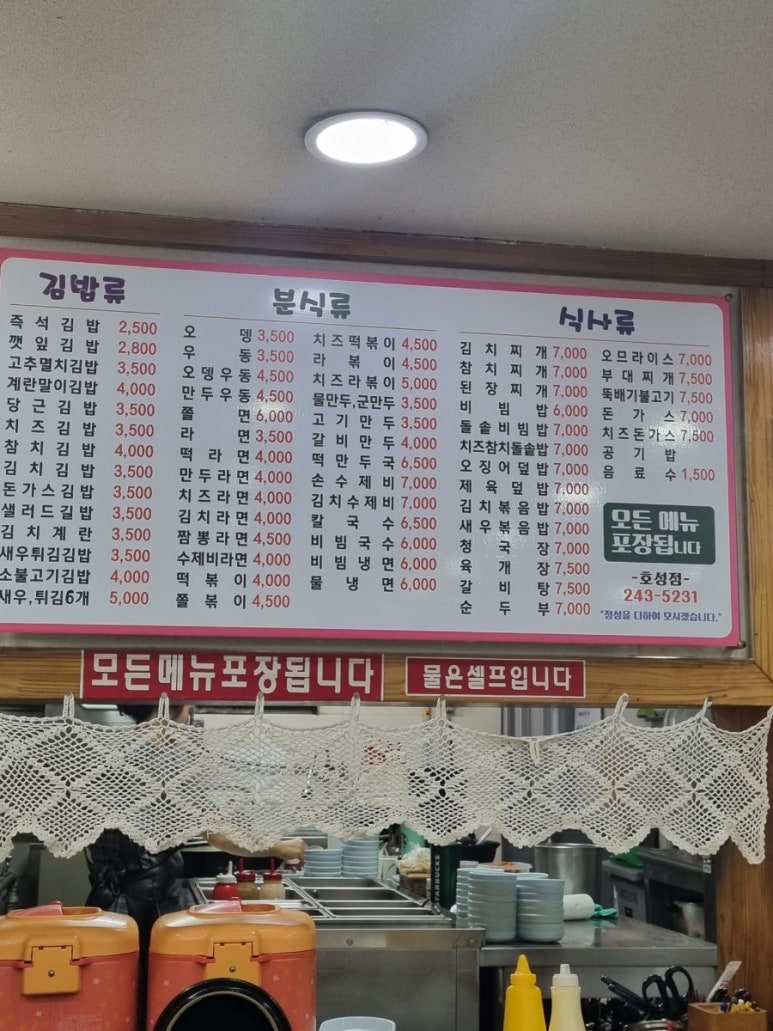 김밥류
즉석김밥 2,500
깻잎김밥 2,800
고추멸치김밥 3,500
계란말이김밥 4,000
당근김밥 3,500
치즈김밥 3,500
참치김밥 4,000
김치김밥 3,500
돈가스김밥 3,500
샐러드김밥 3,500
김치계란 3,500
새우튀김김밥 3,500
소불고기김밥 4,000
새우,튀김6개 5,000
분식류
오뎅 3,500
우동 3,500
오뎅우동 4,500
만두우동 4,500
쫄면 6,000
라면 3,500
떡라면 4,000
만두라면 4,000
치즈라면 4,000
김치라면 4,000
짬뽕라면 4,500
수제비라면 4,000
떡볶이 4,000
쫄볶이 4,500
치즈떡볶이 4,500
라볶이 4,500
치즈라볶이 5,000
물만두,군만두 3,500
고기만두 3,500
갈비만두 4,000
떡만두국 6,500
손수제비 7,000
김치수제비 7,000
칼국수 6,500
비빔국수 6,000
비빔냉면 6,000
물냉면 6,000
식사류
김치찌개 7,000
참치찌개 7,000
된장찌개 7,000
비빔밥 6,000
돌솥비빔밥 7,000
치즈참치돌솥밥 7,000
오징어덮밥 7,000
제육덮밥 7,000
김치볶음밥 7,000
새우볶음밥 7,000
청국장 7,000
육개장 7,500
갈비탕 7,500
순두부 7,000
오므라이스 7,000
부대찌개 7,500
뚝배기불고기 7,500
돈가스 7,000
치즈돈가스 7,500
공기밥
음료수 1,500
모든 메뉴
포장됩니다
-호성점-
243-5231
"정성을 다하여 모시겠습니다."
모든메뉴포장됩니다
물은셀프입니다
STARBUCKS